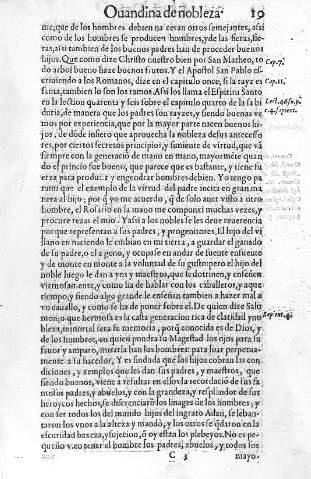 Quando na de nobleza. 19
me, que de los hombres deben nacer an otros semejantes, assi
como de los hombres se producen hombres, y de las fieras, fie-
ras, assi tambien de los buenos padres han de proceder buenos
hijos. Que como dize Christo nuestro bien por San Matheo, to
do arbol bueno haze buenos frutos. Y el Apostol San Pablo es-
criuiendo a los Romanos, dize en el capitulo once, si la rayz es
santa, tambien lo son los ramos. Assi los llama el Espiritu Santo
en la lection quarenta y seis sobre el capitulo quarto de la sabi
duria, de manera que los padres son rayzes, y siendo buenas ve
mos por experiencia, que por la mayor parte nacen buenos hi-
jos, de dõde infiero que aprouecha la nobleza de sus antecesso
res, por ciertos secretos principios, y simiente de virtud, que vã
siempre con la generacion de mano en mano, mayormẽte quan
do el principio fue bueno, que parece que es bastante, y tiene fu
erça para produzir y engendrar hombres de bien. Y o tengo pa
ra mi que el exemplo de la virtud del padre incita en gran ma
nera al hijo; por q̃ yo me acuerdo, q̃ de solo auer visto a otro
hombre, el Rosario en la mano me compungi muchas vezes, y
procure rezar el mio. Y assi a los nobles se les deue reuerencia
por que representan a sus padres, y progenitores. El hijo del vi
llano en naciendo le embian en mi tierra, a guardar el ganado
de su padre, o el ageno, y ocupase en andar de fuente en fuente
y de monte en monte a la voluntad de su gusto: pero el hijo del
noble luego le dan ayos y maestros, que le dotrinen, y enseñen
virtuosamente, y como ha de hablar con los caualleros, y aque
tiempo; y siendo algo grande le enseñan tambien a hazer mal a
vn cauallo, y como se ha de poner sobre el. De quien dize Salo
mon, o que hermosa es la casta generacion rica de claridad y no
bleza, inmortal sera su memoria, porq̃ conocida es de Dios, y
de los hombres, en quien pondra su Magestad los ojos para su
fauor y amparo, mirarla han los hombres: para loar perpetua-
mente a su hazedor. Y es sin duda que los hijos cobran las con
diciones, y exemplos que les dan sus padres, y maestros, que
siendo buenos, viene a resultar en ellos la recordaciõ de sus fa
mosos padres, y abuelos, y con la grandeza, y resplandor de sus
heroycos hechos, se diferenciarõ los linages de los hombres, y
con ser todos los del mundo hijos del ingrato Adan, se leban-
taron los vnos a la alteza y mando, y los otros se q̃daron en la
escuridad baxeza, y sujecion, ẽ q̃ estan los plebeyos. No es pe-
queño y en tener el hombre los padres, abuelos, y todos sus
C 3 mayo-
Cap. 7.
Cap. 11.
Lect. 46. so.
c. 4. sapient.
Sapient. 4.